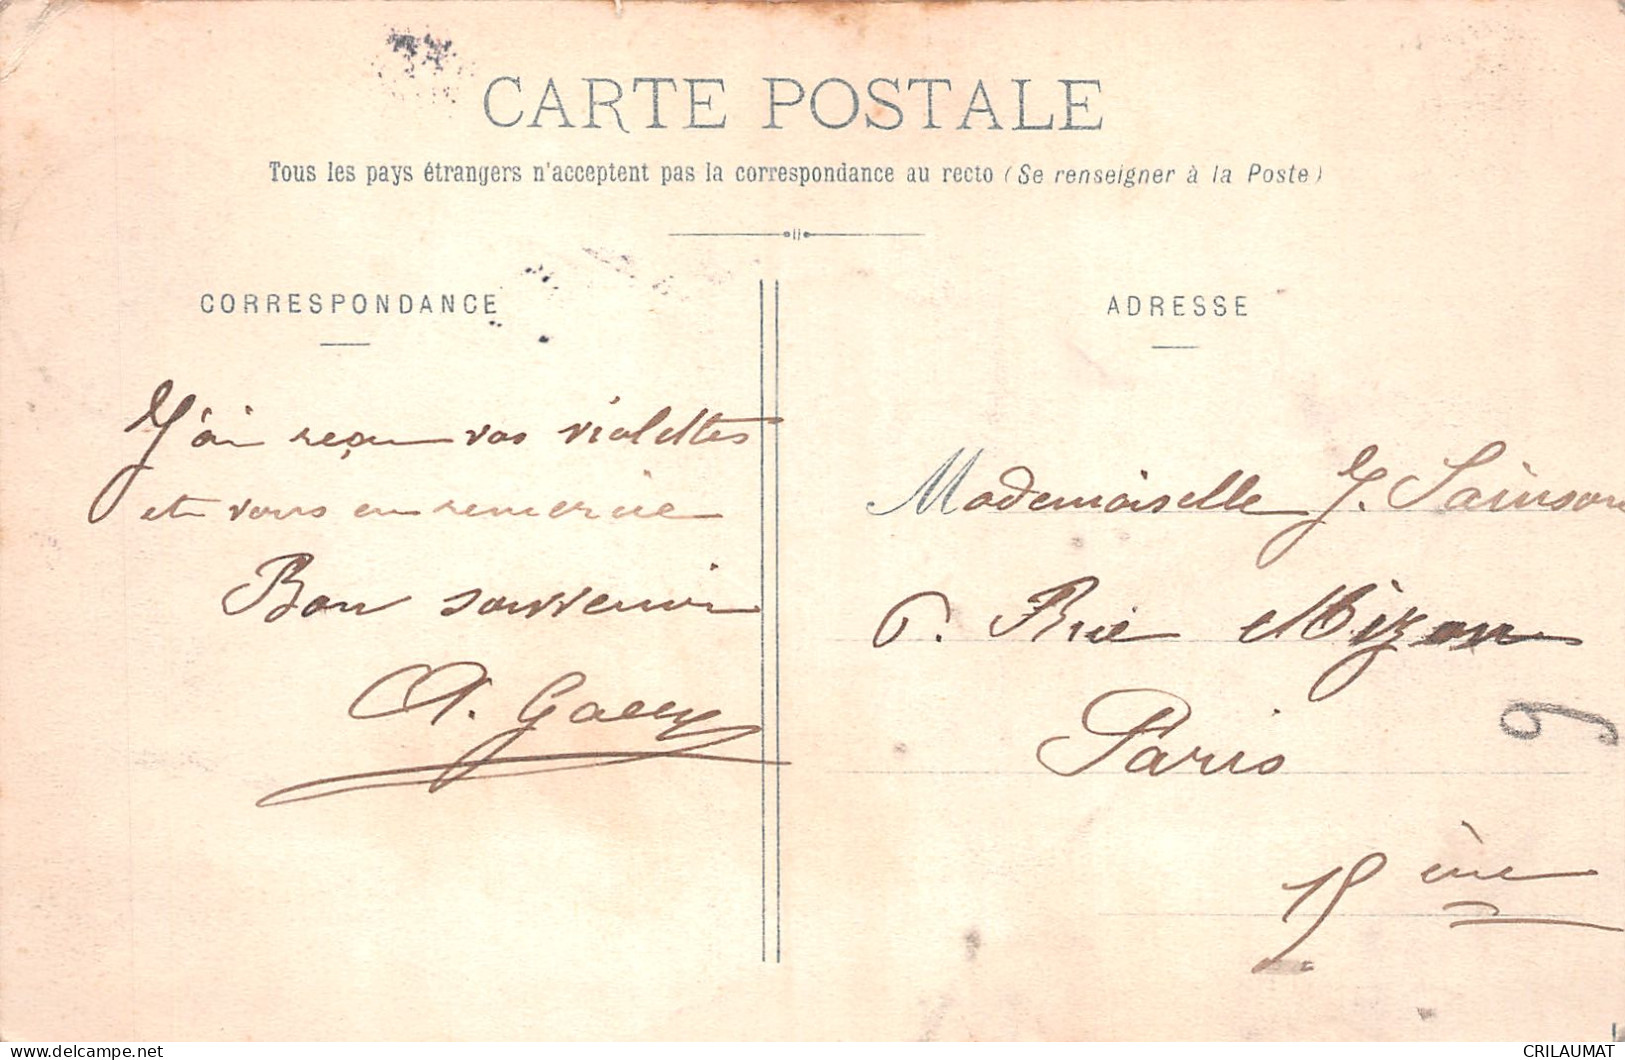 CARTE POSTALE
Tous les pays étrangers n'acceptent pas la correspondance au recto (Se renseigner à la Poste)
CORRESPONDANCE
J'ai reçu vos violettes
et vous en remercie
Bon souvenir
A. Gaery
ADRESSE
Mademoiselle J. Sainson
6. Rue Mizon
Paris
15 ème
9
CRILAUMAT